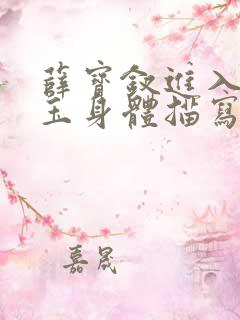 薛寶釵進入
玉身體描寫
嘉晟